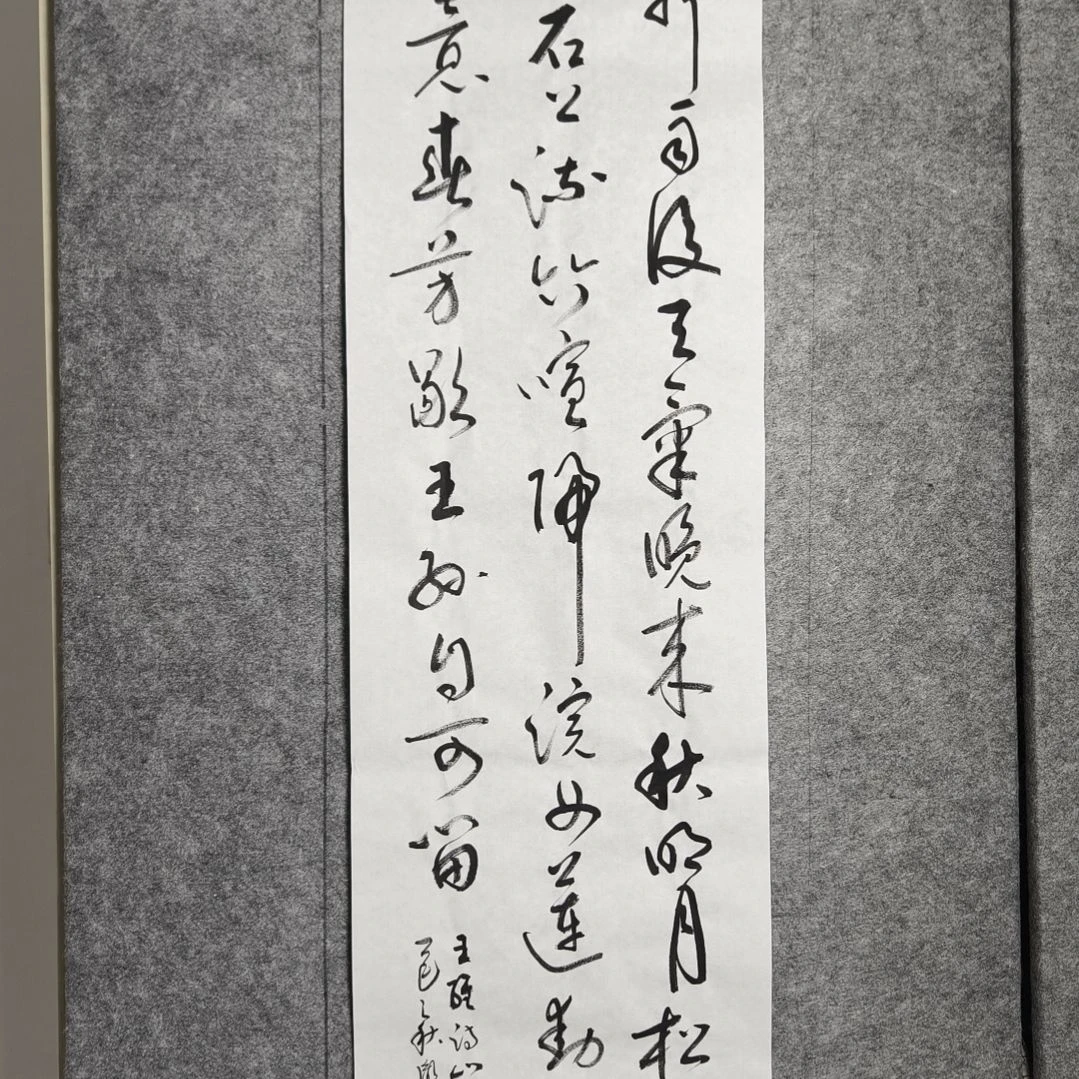 雨後天氣晚來秋明月松
石上流竹喧歸浣女蓮動
意春芳歇王孫自可留
王維詩山
乙巳之秋